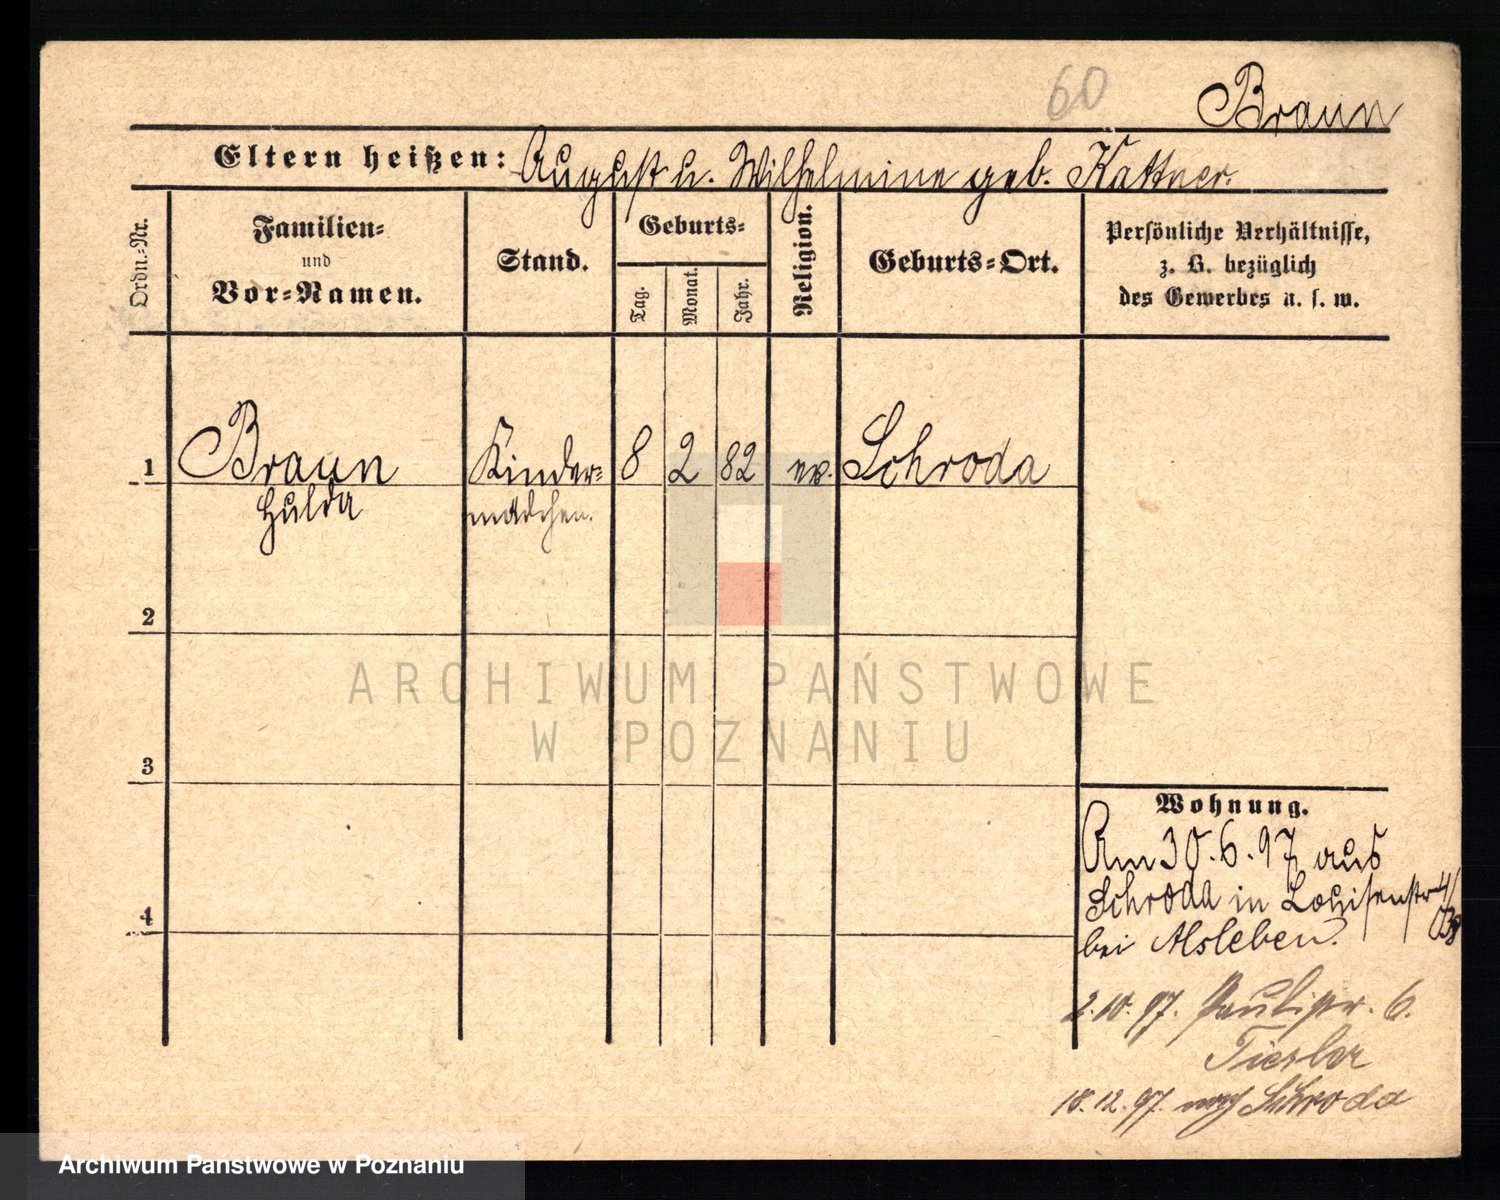 60
Braun
Eltern heißen: August u. Wilhelmine geb. Kattner.
Ordn.-Nr.
Familien-
und
Vor-Namen.
Stand.
Geburts-
Tag.
Monat.
Jahr.
Religion.
Geburts-Ort.
Persönliche Verhältnisse,
z. B. bezüglich
des Gewerbes u. s. w.
1 Braun Kinder- 8 2 82 ev. Schroda
Hulda mädchen.
2
3
4
Wohnung.
Am 30.6.97 aus
Schroda in Louisenstr 4/
bei Alsleben.
2.10.97. Paulipr. 6.
Tiesler
18.12.97. nach Schroda
ARCHIWUM PAŃSTWOWE
W POZNANIU
Archiwum Państwowe w Poznaniu